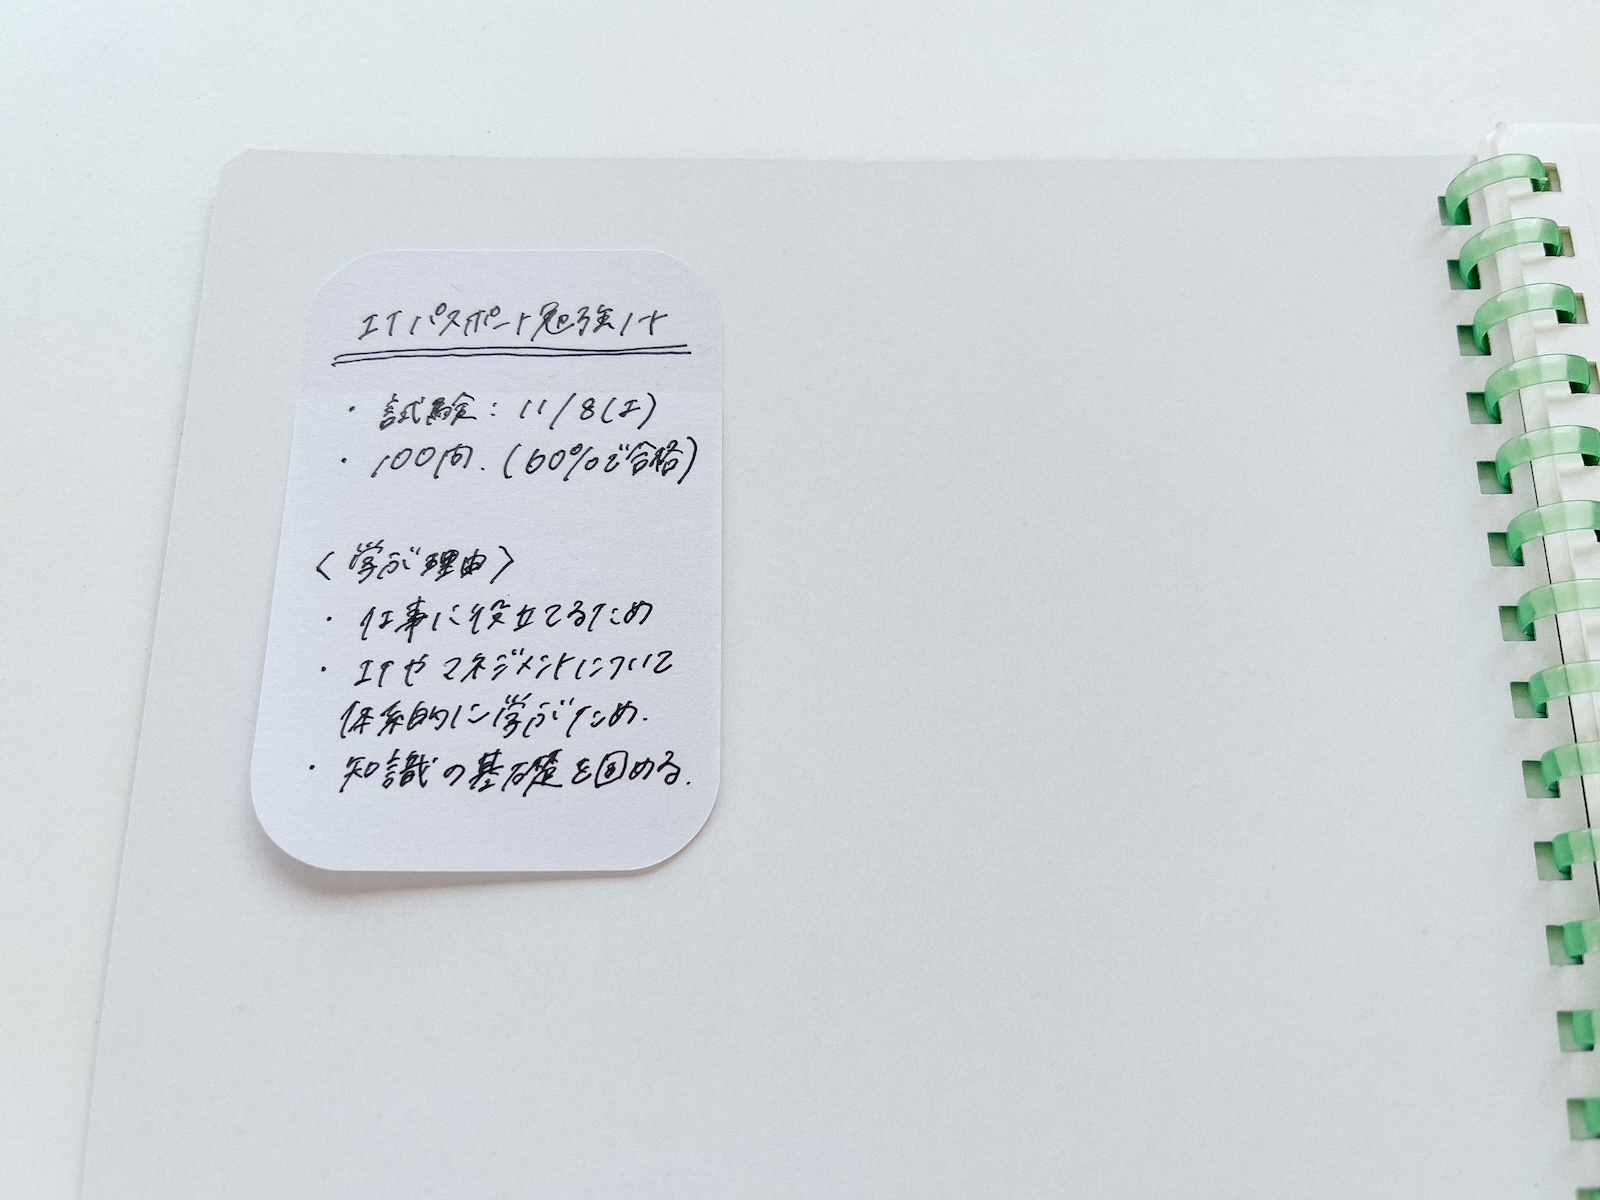 ITパスポート勉強ノート
・試験：11/8(土)
・100問.（60%で合格）
〈学ぶ理由〉
・仕事に役立てるため
・ITやマネジメントについて
体系的に学ぶため.
・知識の基礎を固める.